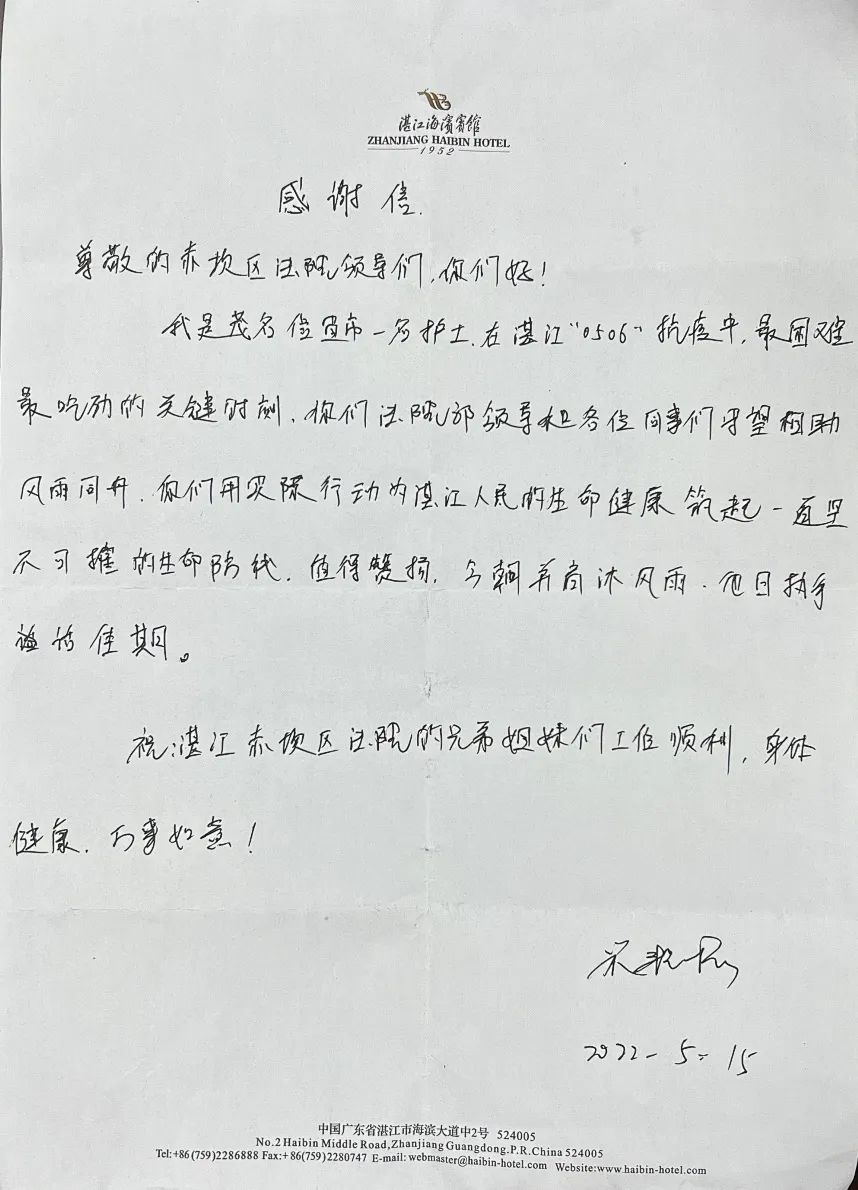 湛江海滨宾馆
ZHANJIANG HAIBIN HOTEL
1952
感谢信.
尊敬的赤坎区法院领导们,你们好!
我是茂名信宜市一名护士.在湛江"0506"抗疫中,最困难
最吃劲的关键时刻.你们法院部领导和各位同事们守望相助
风雨同舟.你们用实际行动为湛江人民的生命健康筑起一道坚
不可摧的生命防线.值得赞扬.今朝并肩沐风雨.他日执手
佳期。
祝:湛江赤坎区法院的兄弟姐妹们工作顺利,身体
健康.万事如意!
2022-5-15
中国广东省湛江市海滨大道中2号 524005
No.2 Haibin Middle Road,Zhanjiang Guangdong.P.R.China 524005
Tel:+86(759)2286888 Fax:+86(759)2280747 E-mail: webmaster@haibin-hotel.com Website:www.haibin-hotel.com